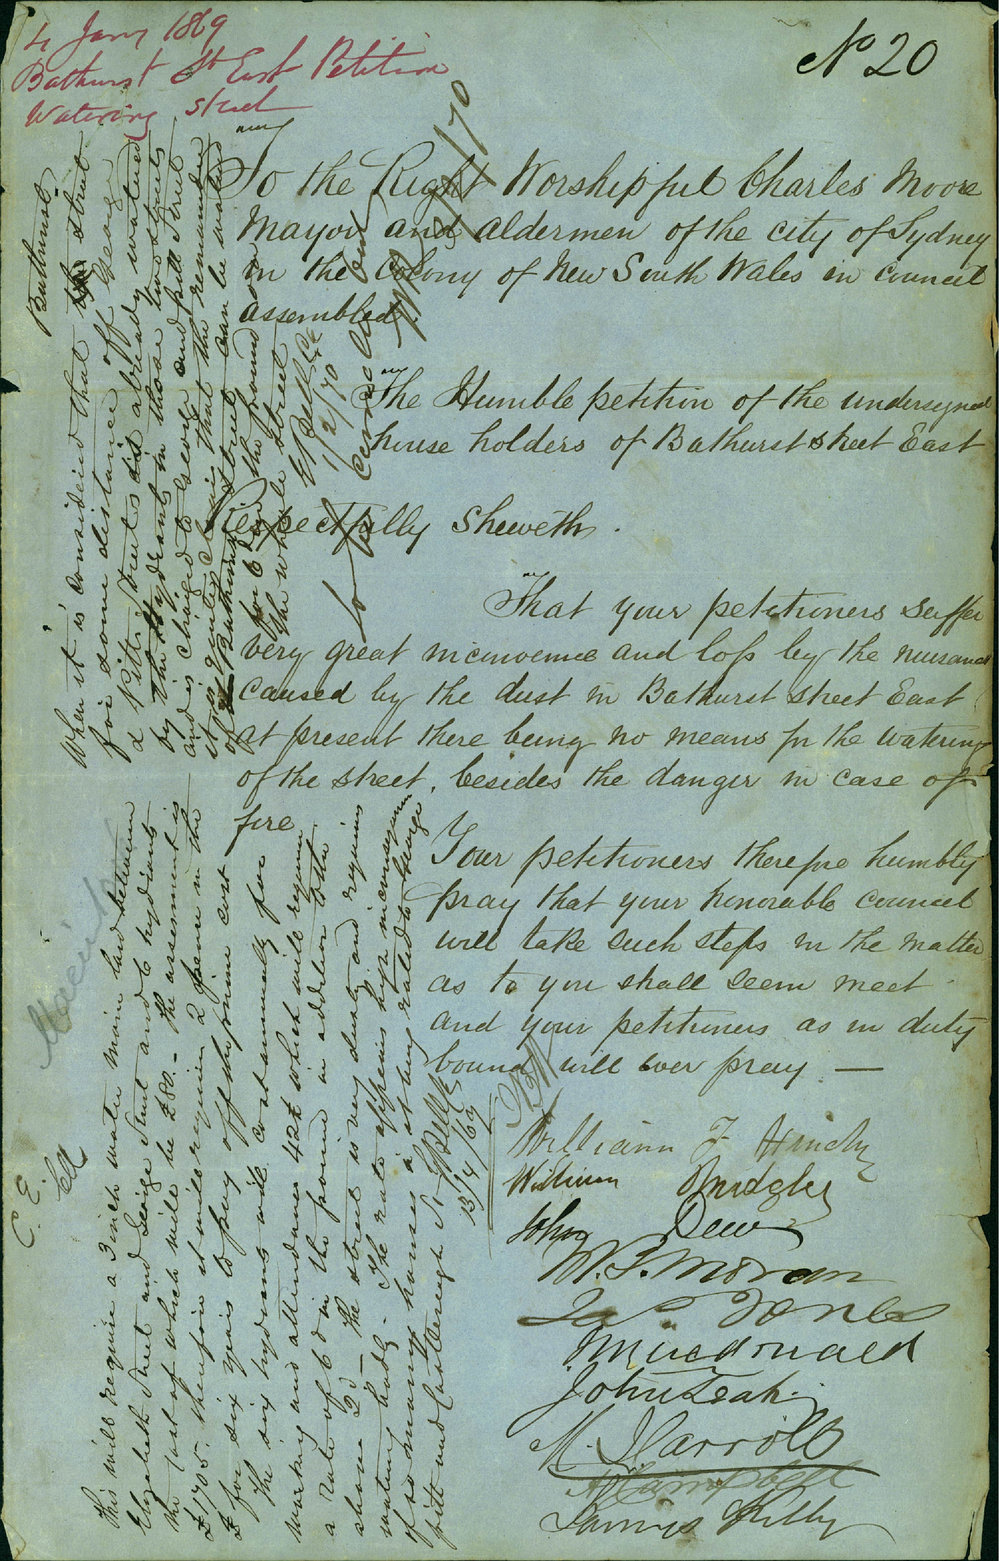 4 Jany 1869
Bathurst St East Petition
Watering street
No 20
To the Right Worshipful Charles Moore
Mayor and aldermen of the city of Sydney
in the colony of New South Wales in council
assembled.
The Humble petition of the undersigned
house holders of Bathurst street East
Respectfully Sheweth.
That your petitioners suffer
very great inconvenience and loss by the nuisance
caused by the dust in Bathurst street East
at present there being no means for the watering
of the street, besides the danger in case of
fire
Your petitioners therefore humbly
pray that your honorable council
will take such steps in the matter
as to you shall seem meet
and your petitioners as in duty
bound will ever pray —
William F Hinchy
William Bridgley
John Dew
W. F. Moran
Jas Jones
Macdonald
John Leah
M. Carroll
A Campbell
James Kelly
This will require a 3 inch water main laid between
Elizabeth Street and George Street and 6 hydrants
the cost of which will be £80. – The assessment is
£1705. therefore it will require 2 pence in the
£ for six years to pay off the prime cost
The six hydrants will cost annually for
working and attendance 42£ which will require
a rate of 6d in the pound in addition to the
above 2d – The street is very dusty and requires
watering badly – The rate appears high in consequence
of so many houses in it being rated to George
Pitt and Castlereagh St
13/4/69
Bathurst
When it is considered that the street
for some distance off George
& Pitt Streets is already watered
by the Hydrants in those two streets
and is charged to George and Pitt Street
it is quite clear that the remainder
of Bathurst street can be watered
for 6d in the pound on
the whole street
1/2/70
C. E.